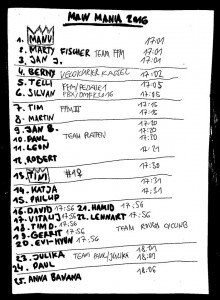 MAW MANIA 2016
1. MANU 17:01
2. MARTY FISCHER TEAM FFM 17:01
3. JAN J. 17:01
4. BERNY VELOKURIER KASTEL 17:02
5. TELLI 17:05
6. SILVAN 17:05
7. TIM FFM 17:15
8. MARTIN 17:15
9. JAN B. 17:20
10. PAUL TEAM 17:20
11. LEON 17:21
12. ROBERT
13. TIM #18 17:30
14. KATJA 17:31
15. PHILIP 17:31
16. DAVID 17:56 21. HAMID 17:56
17. VITALIJ 17:56 22. LENNART 17:56
18. TIM D. 17:56 TEAM CYCLING
19. GERRIT 17:56
20. EVI-HYUN 17:56
23. JULIKA TEAM PAUL/JULIKA 18:01
24. PAUL 18:01
25. ANNA BANANA 18:06